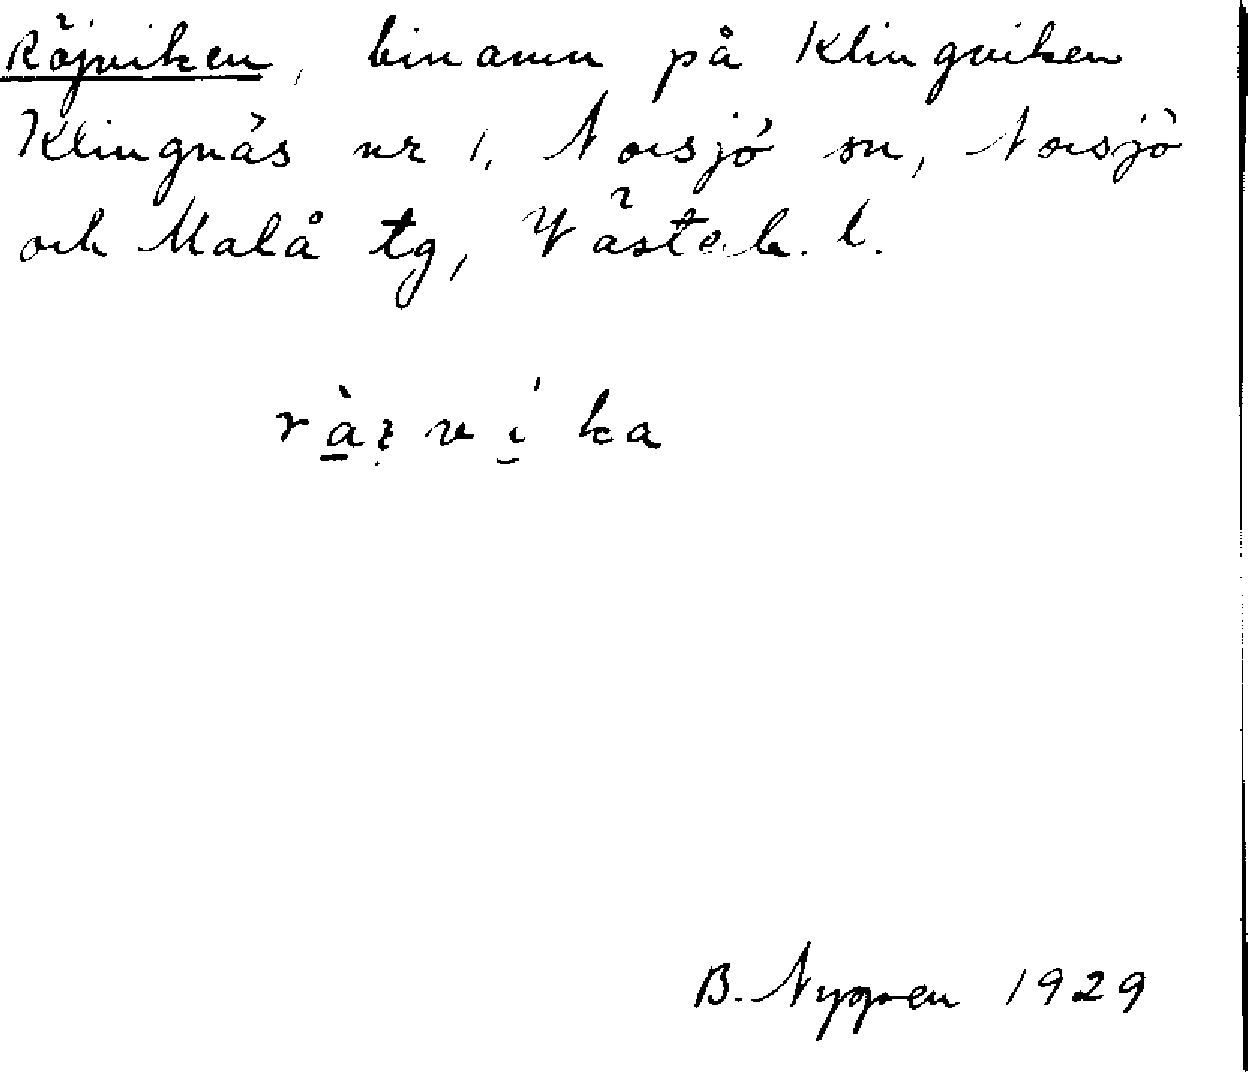 Röjviken, binamn på Klingviken
Klingnäs nr 1, Norsjö sn, Norsjö
och Malå tg, Västerb. l.
B. Nygren 1929